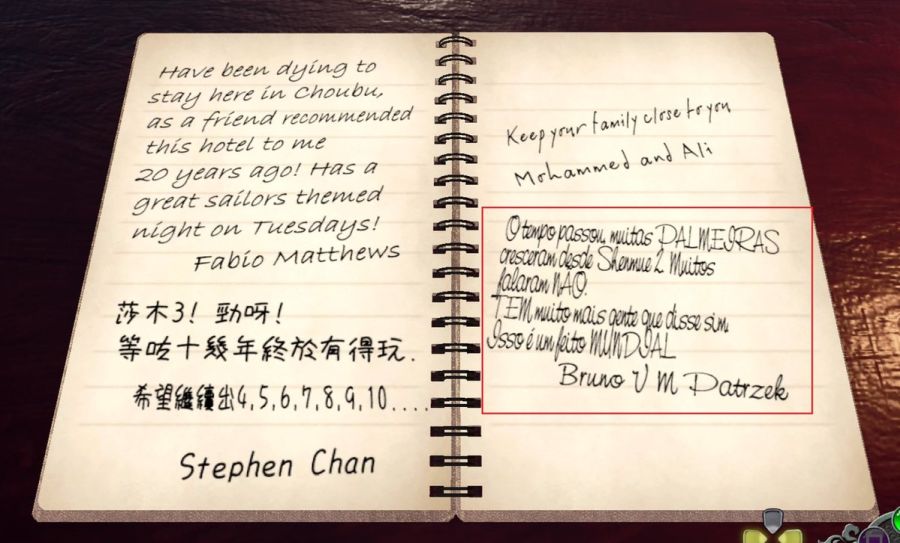 Have been dying to
stay here in Choubu,
as a friend recommended
this hotel to me
20 years ago! Has a
great sailors themed
night on Tuesdays!
Fabio Matthews
莎木3！勁呀！
等咗十幾年終於有得玩.
希望繼續出4,5,6,7,8,9,10....
Stephen Chan
Keep your family close to you
Mohammed and Ali
O tempo passou, muitas PALMEIRAS
cresceram desde Shenmue 2. Muitos
falaram NAO.
TEM muito mais gente que disse sim.
Isso é um feito MUNDIAL
Bruno V M Patrzek